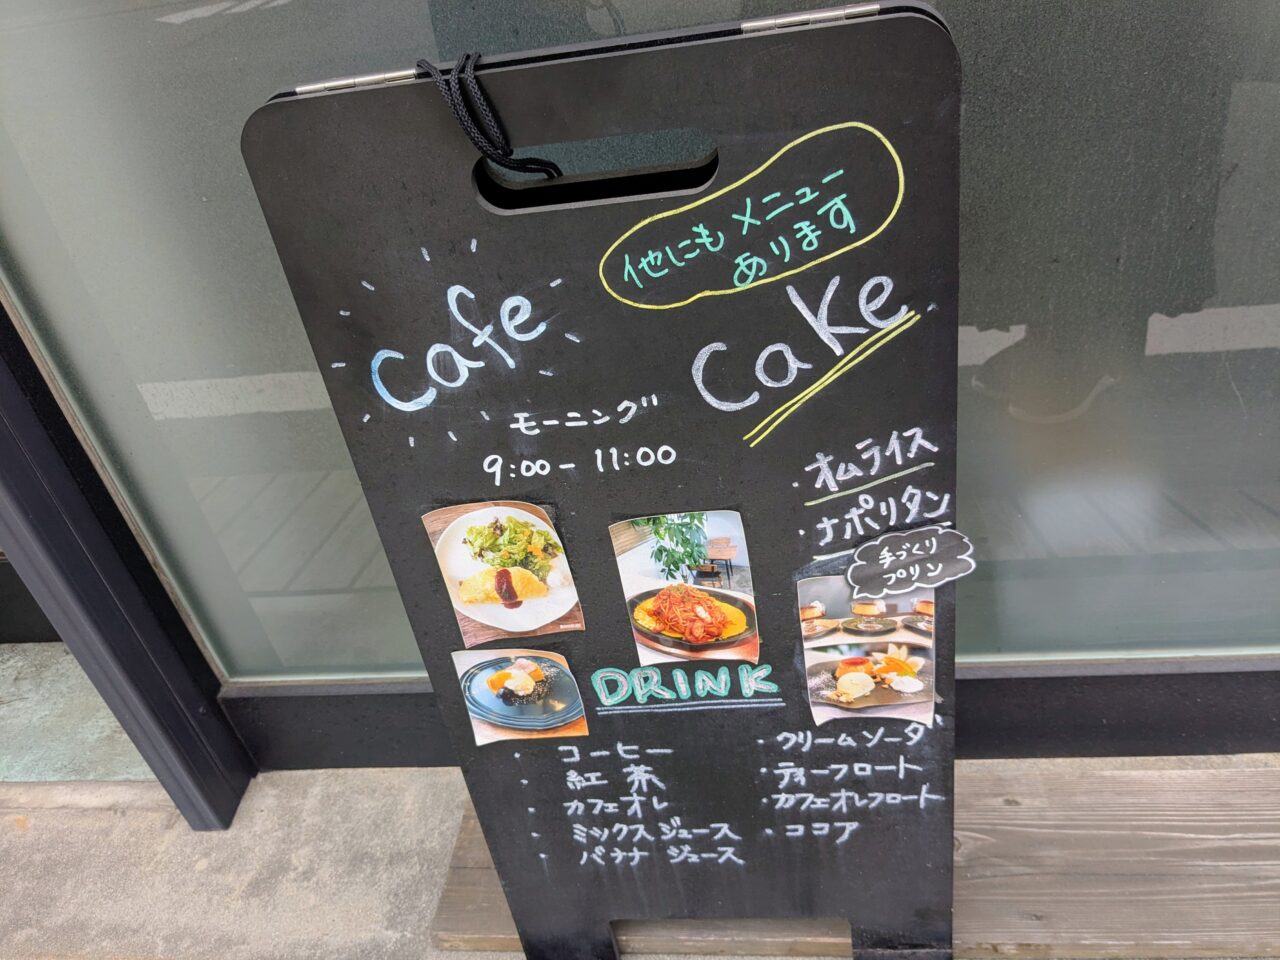 他にもメニュー
あります
Cafe
Cake
モーニング
9:00 - 11:00
・オムライス
・ナポリタン
手づくり
プリン
DRINK
・コーヒー
・紅茶
・カフェオレ
・ミックスジュース
・バナナジュース
・クリームソーダ
・ティーフロート
・カフェオレフロート
・ココア